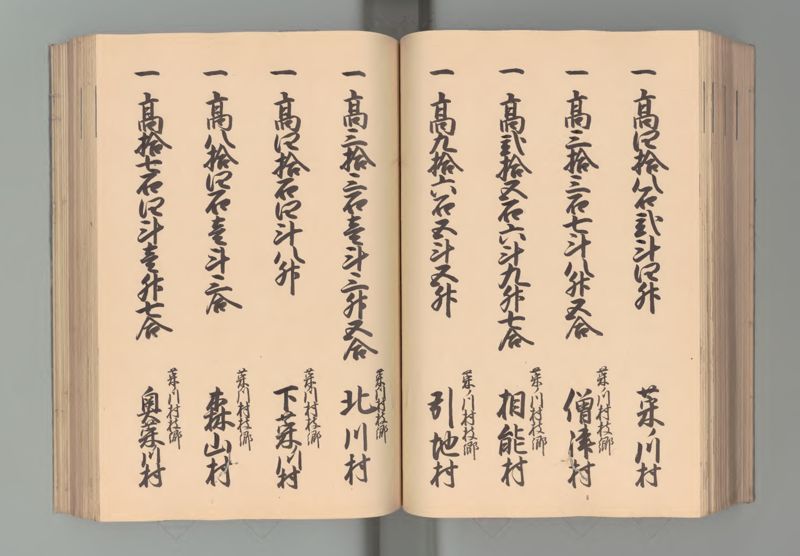 一 高四拾八石弐斗四升
菜ノ川村
一 高三拾三石七斗八升五合
菜ノ川村枝郷
僧津村
一 高弐拾五石六斗九升七合
菜ノ川村枝郷
相能村
一 高九拾六石五斗五升
菜ノ川村枝郷
引地村
一 高三拾三石壱斗三升五合
菜ノ川村枝郷
北川村
一 高四拾石四斗八升
菜ノ川村枝郷
下菜ノ川村
一 高八拾四石壱斗三合
菜ノ川村枝郷
森山村
一 高拾七石四斗壱升七合
菜ノ川村枝郷
奥菜ノ川村